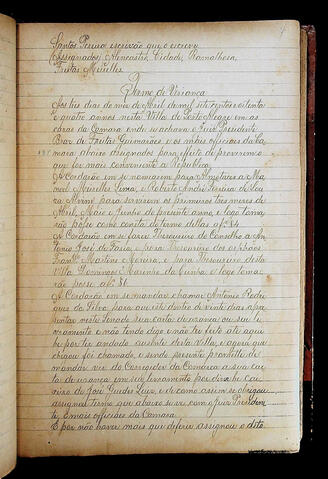 Santos Pereira escrivão que o escrevy
Assignados, Alencastre, Cidade, Ramalhosa,
Freitas, Meirelles.
Termo de Vreança
Aos tres dias do mez de Abril de mil sete centos e oitenta
e quatro annos nesta Villa de Porto Alegre em as
casas da Camara onde se achavam o Juiz Presidente
de Freitas Guimarães e os mais officiaes da Ca
mara abaixo assignados, para effeito de proverem o
que for mais conveniente a Republica.
Acordarão em se nomearem para Almotaces a Ma
noel Meirelles Lima, e Roberto André Pereira
para servirem os primeiros tres mezes de
Abril, Maio e Junho do presente anno, e logo toma
rão posse como consta do termo dellas a fl. 84.
Acordarão em se Thesoureiro do Conselho a An
tonio José de Faria, e para Thesoureiro dos orphãos
Martins Moreira, e para Thesoureiro desta
Villa Domingos Marinho da Cunha e logo toma
rão posse a fl. 86.
Acordarão em se mandar chamar Antonio Rodri
gues da Silva, para que este dentro de vinte dias apre
sentar neste Senado sua carta de uzança ou seu
e não tendo digo e não ter feito até aqui
por ter andado auzente desta Villa, e agora que
chegou foi chamado, e sendo presente prometteu
mandar vir do Corregedor da Comarca a sua car
ta de uzança em seu livramento por
de José Guedes Luiz, e de como assim se obrigou
assignou termo que abaixo com o Juiz Presiden
te, e mais officiaes da Camara
E por não haver mais que deferir assignou o dito